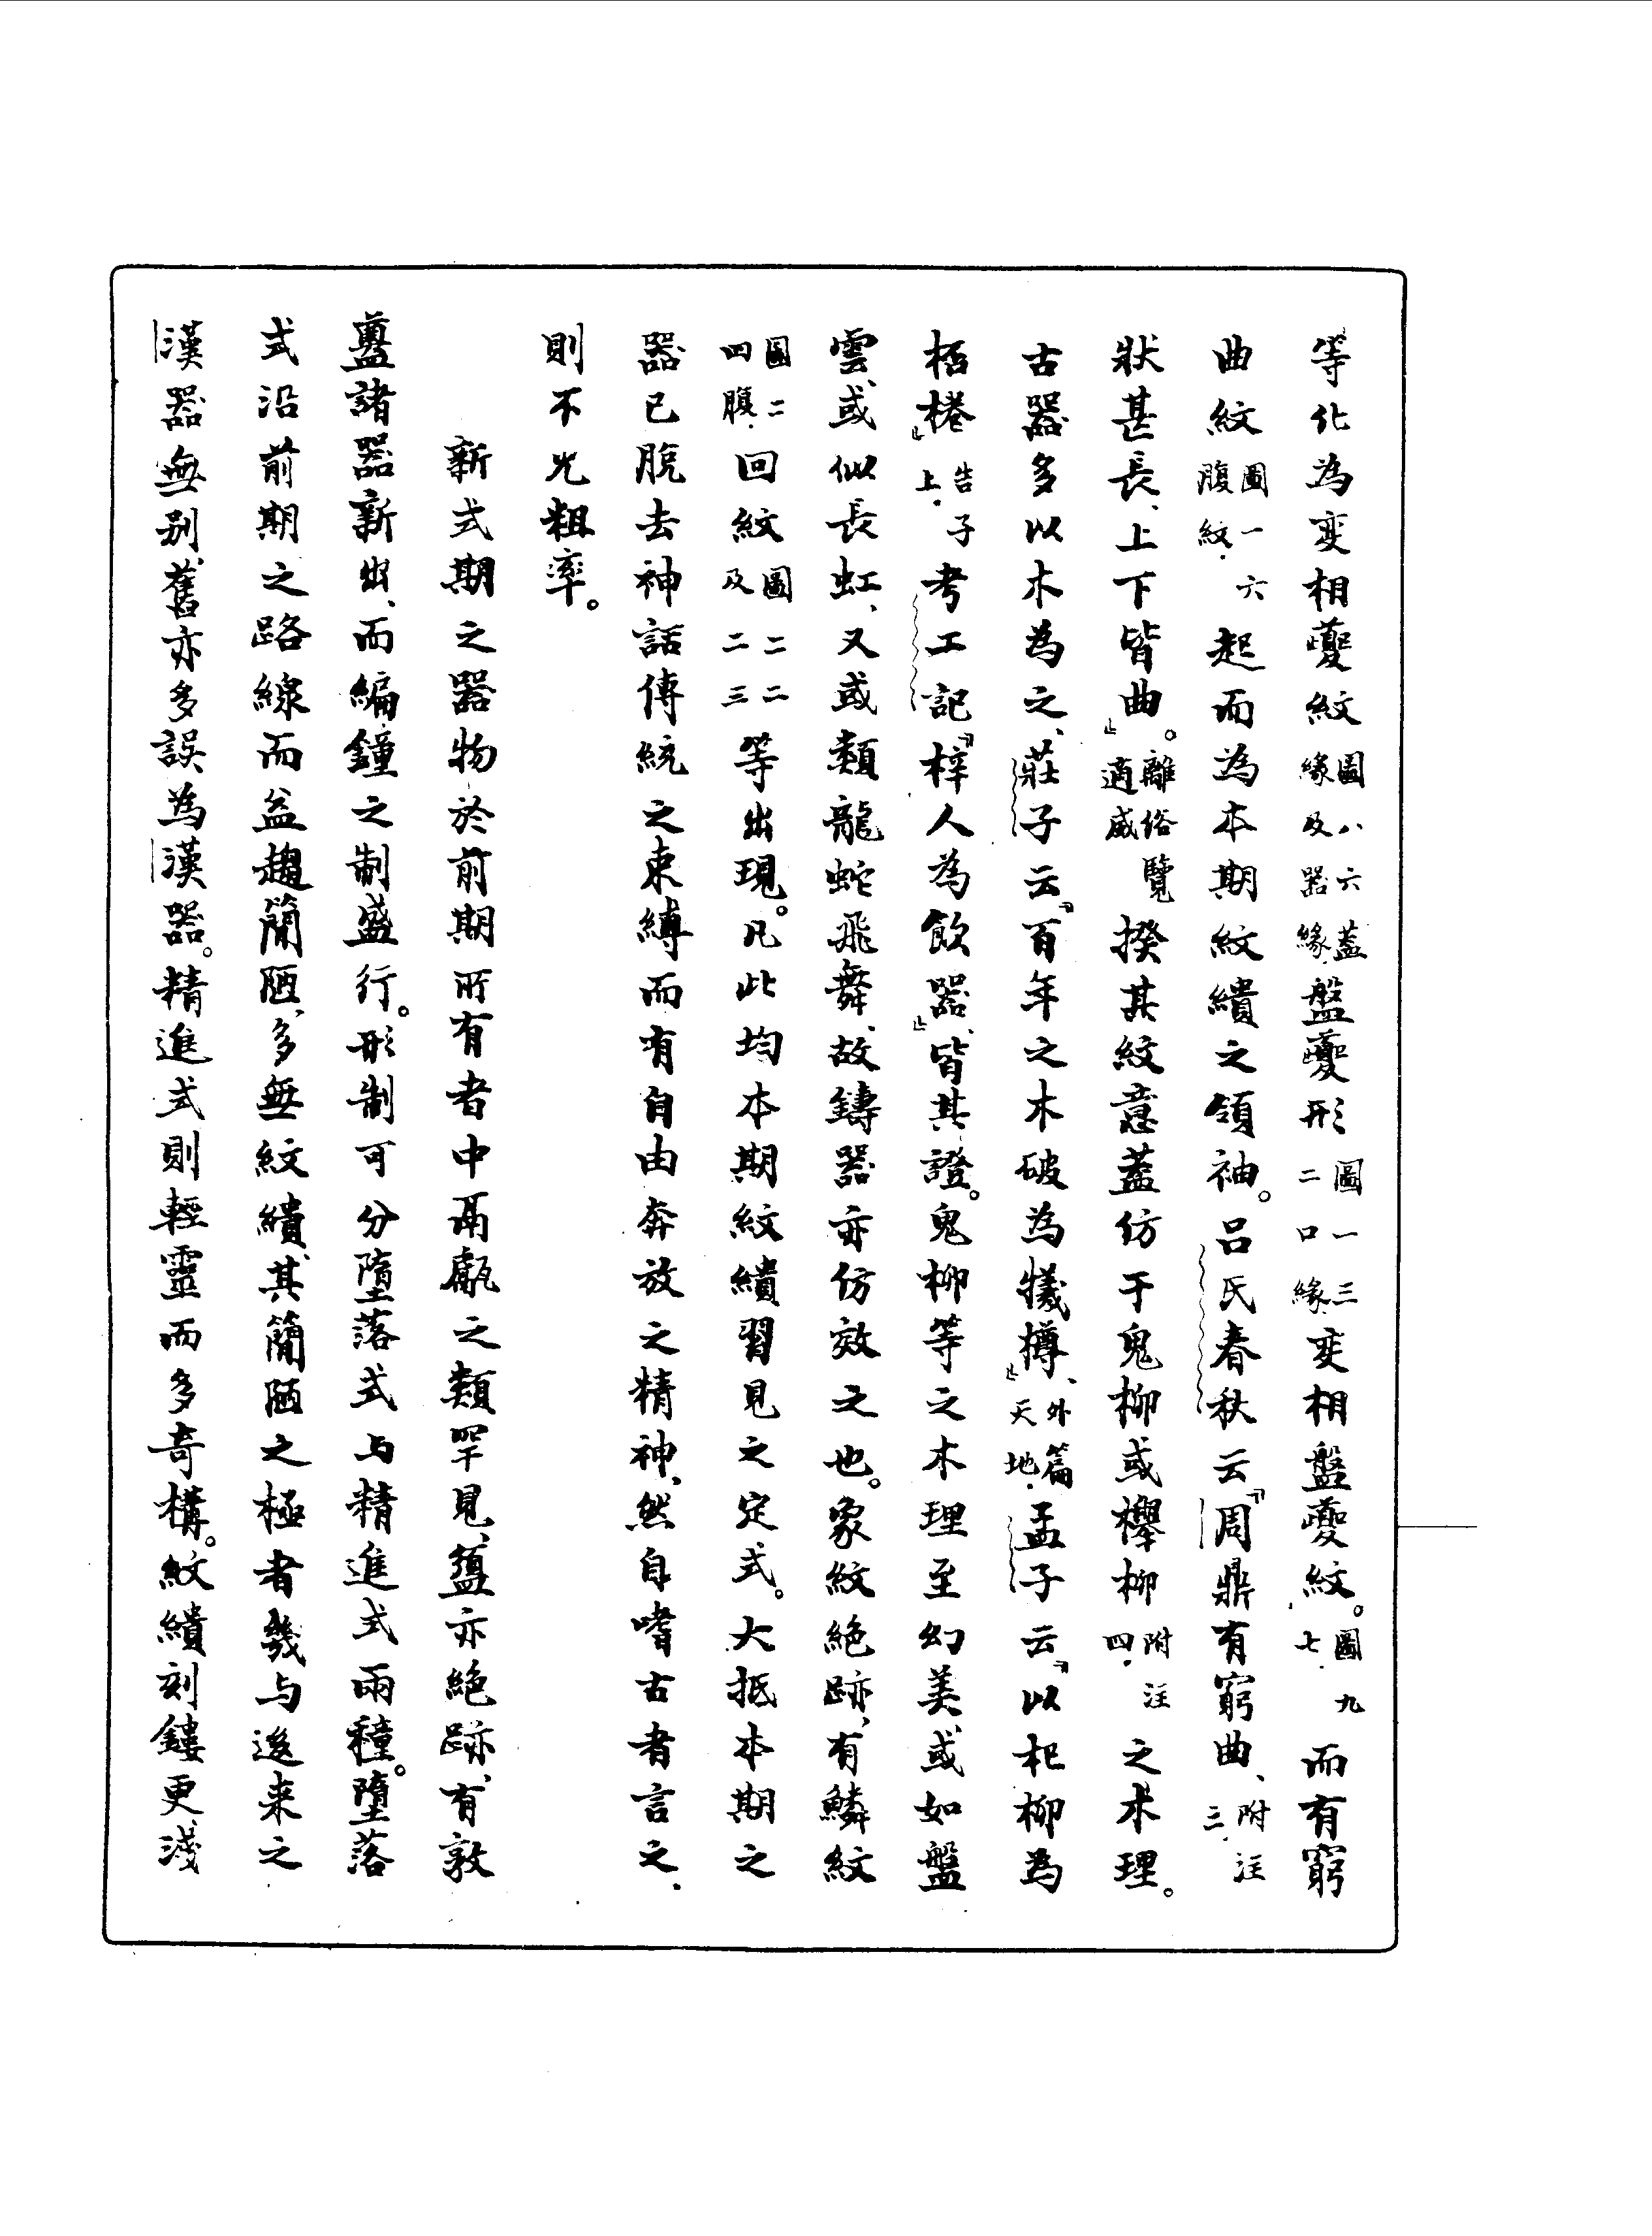 等化為变相夔紋圖八六蓋緣及器緣.盤夔形圖一三二口緣.变相盤夔紋。圖九七.而有窮
曲紋圖一六腹紋.起而為本期紋繢之領袖。呂氏春秋云『周鼎有窮曲、附注三.
狀甚長、上下皆曲』。離俗覽適威揆其紋意蓋仿于鬼柳或櫸柳附注四.之木理。
古器多以木為之、莊子云『百年之木破為犧樽』、外篇天地.孟子云『以杞柳為
桮棬』告子上.考工記『梓人為飲器』、皆其證。鬼柳等之木理至幻美、或如盤
雲、或似長虹、又或類龍蛇飛舞、故鑄器亦仿效之也。象紋絶跡、有鱗紋
圖二四腹.回紋圖二二及二三等出現。凡此均本期紋繢習見之定式。大抵本期之
器已脫去神話傳統之束縛而有自由奔放之精神、然自嗜古者言之、
則不免粗率。
新式期之器物於前期所有者中鬲甗之類罕見、簋亦絶跡、有敦
簠諸器新出、而編鐘之制盛行。形制可分墮落式与精進式兩種。墮落
式沿前期之路線而益趨簡陋、多無紋繢、其簡陋之極者幾与後来之
漢器無别、舊亦多誤為漢器。精進式則輕靈而多奇構。紋繢刻鏤更淺